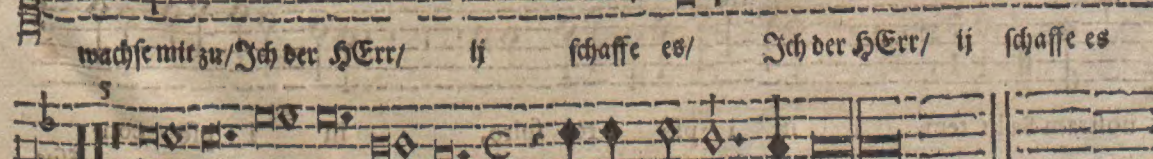 wachse mir zu/Ich der HErr/ ij schaffe es/ Ich der HErr/ ij schaffe es
5